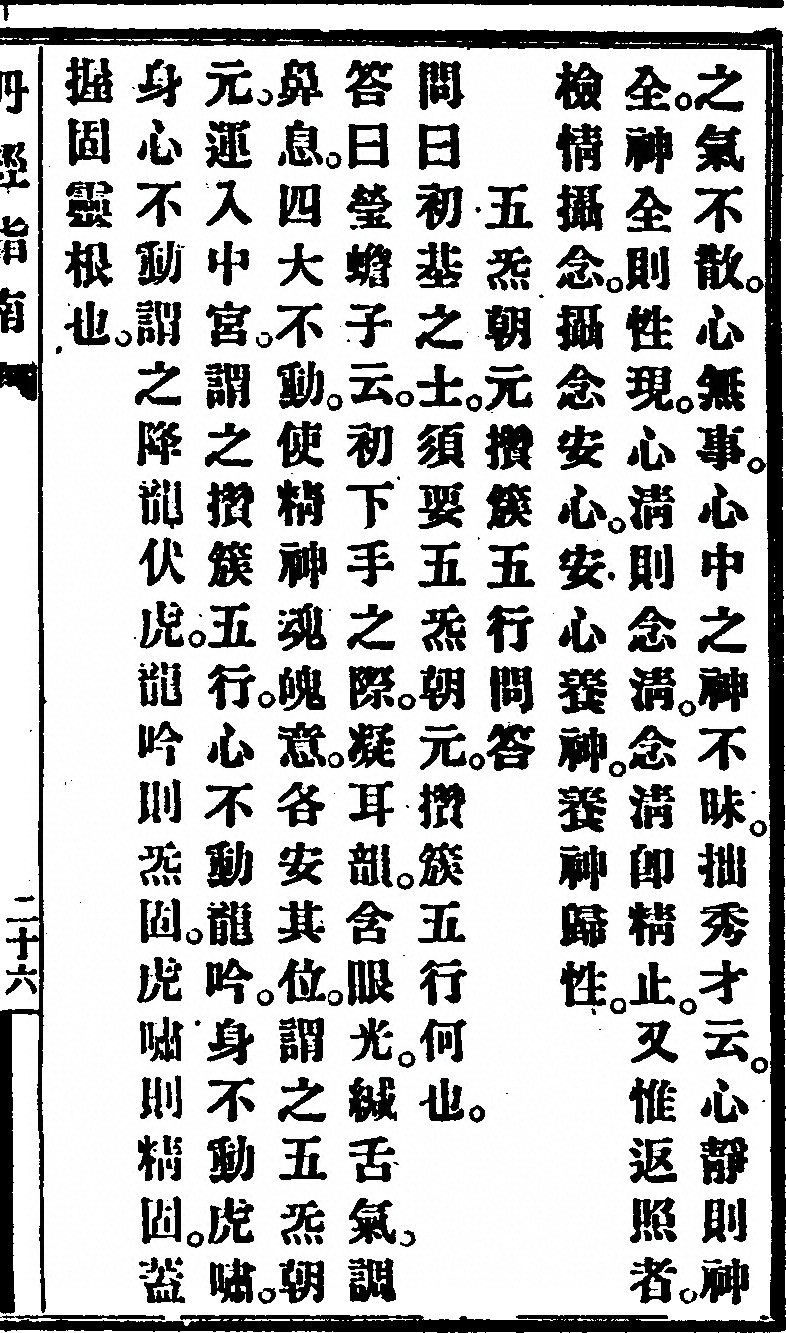 之氣不散。心無事。心中之神不昧。拙秀才云。心靜則神
全。神全則性現。心淸則念淸。念淸卽精止。又惟返照者。
檢情攝念。攝念安心。安心養神。養神歸性。
五炁朝元攢簇五行問答
問曰初基之士。須要五炁朝元。攢簇五行何也。
答曰瑩蟾子云。初下手之際。凝耳韻。含眼光。緘舌氣。調
鼻息。四大不動。使精神魂魄意。各安其位。謂之五炁朝
元。運入中宮。謂之攢簇五行。心不動龍吟。身不動虎嘯。
身心不動謂之降龍伏虎。龍吟則炁固。虎嘯則精固。蓋
握固靈根也。
丹經指南
二十六